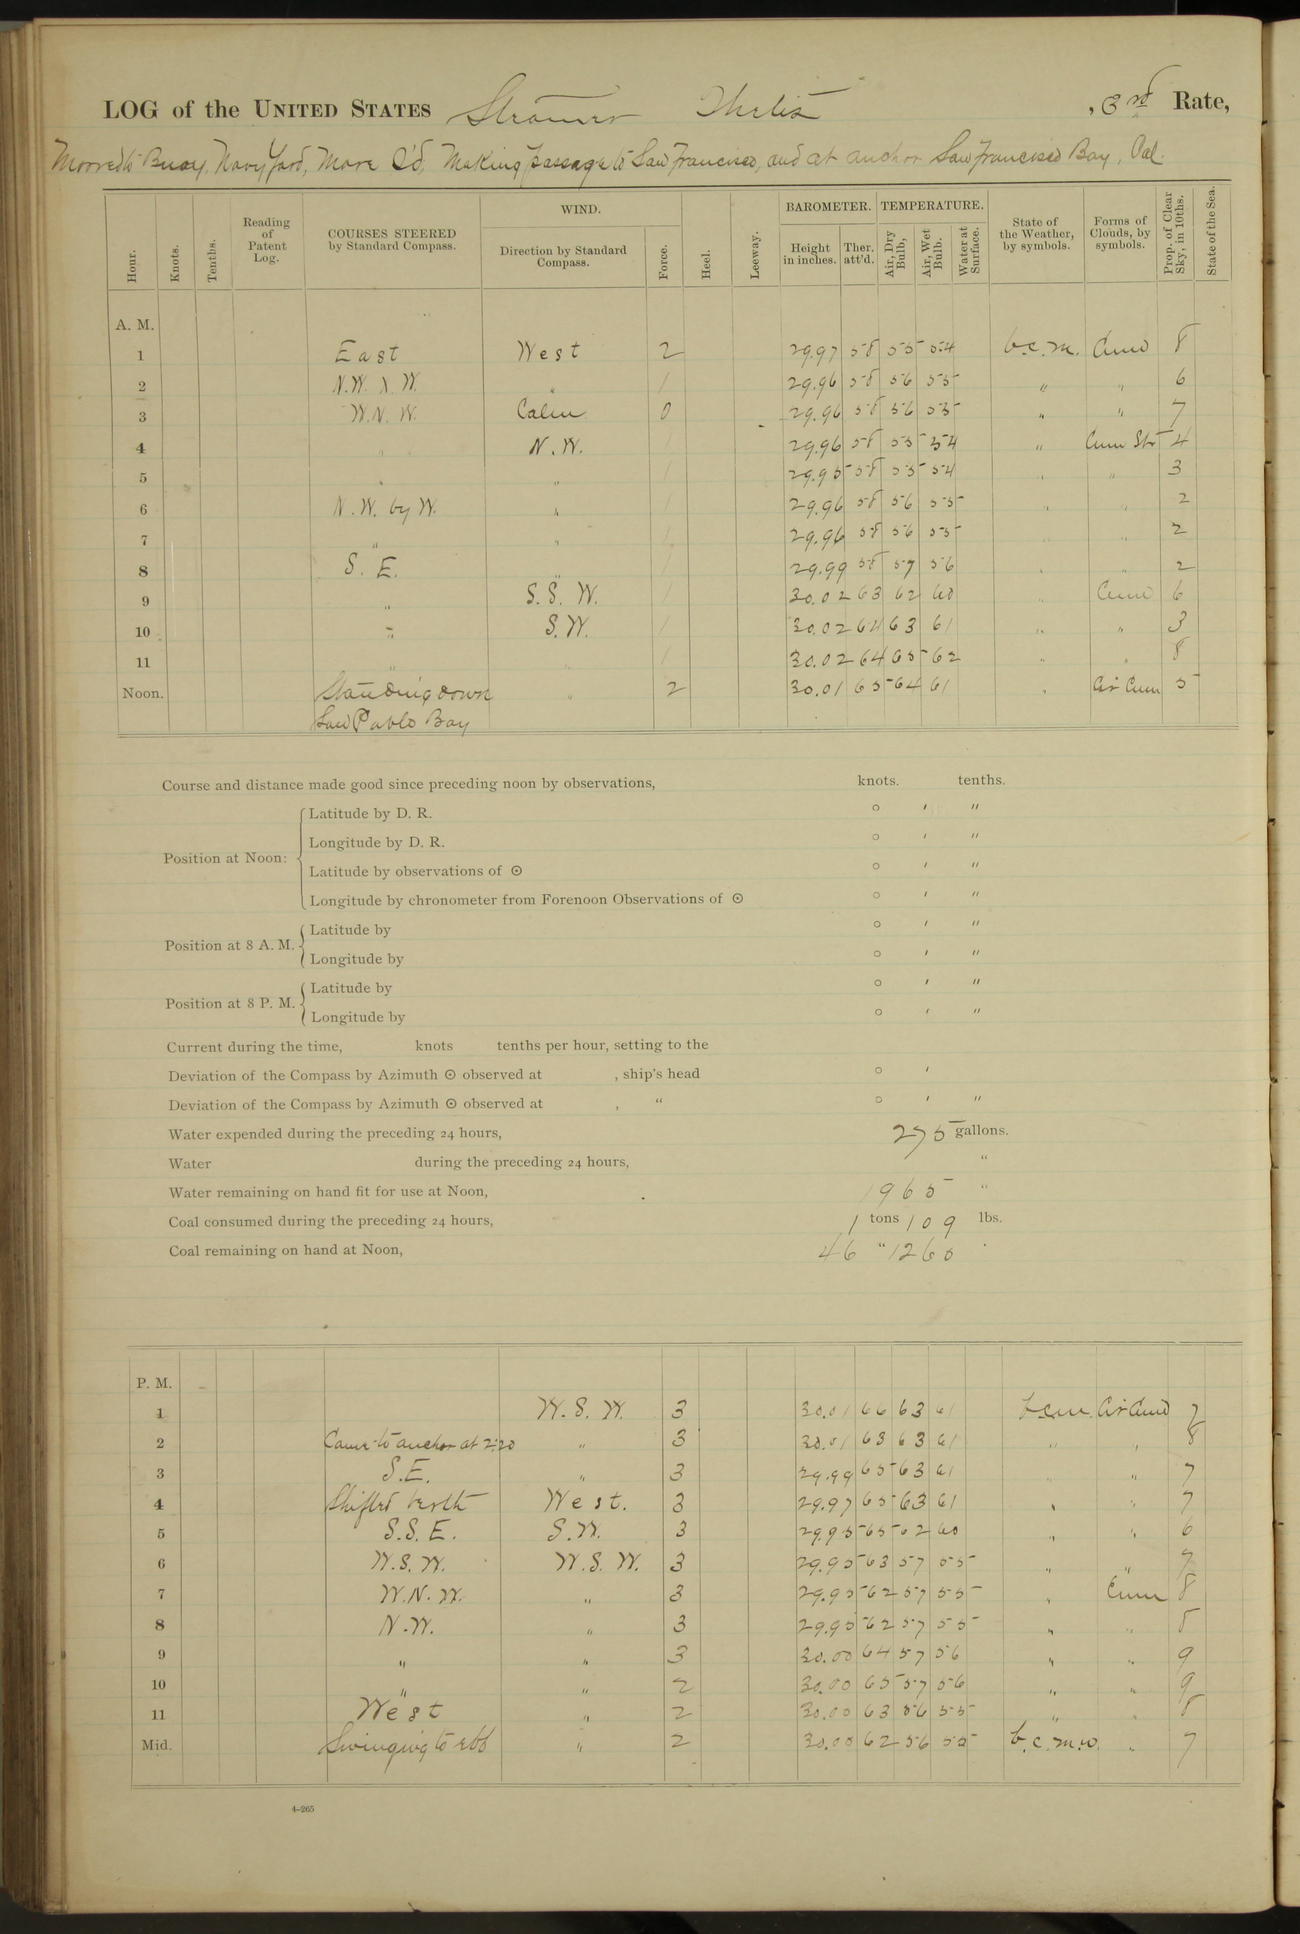 LOG of the UNITED STATES Steamer Thetis , 3rd Rate,
Moored to Buoy, Navy Yard, Mare I'd, Making passage to San Francisco, and at anchor San Francisco Bay, Cal.
Hour. Knots. Tenths. Reading of Patent Log. COURSES STEERED by Standard Compass. WIND. Direction by Standard Compass. Force. Heel. Leeway. BAROMETER. Height in inches. Ther. att'd. TEMPERATURE. Air, Dry Bulb, Air, Wet Bulb. Water at Surface. State of the Weather, by symbols. Forms of Clouds, by symbols. Prop. of Clear Sky, in 10ths. State of the Sea.
A. M.
1 East West 2 29.97 58 55 54 b.c.m. Cum 8
2 N.W. x W. " 1 29.96 58 56 55 " " 6
3 W.N.W. Calm 0 29.96 58 56 55 " " 7
4 " N.W. 1 29.96 58 55 54 " Cum Str 4
5 " " 1 29.95 58 55 54 " " 3
6 N.W. by W. " 1 29.96 58 56 55 " " 2
7 " " 1 29.96 58 56 55 " " 2
8 S.E. " 1 29.99 58 57 56 " " 2
9 " S.S.W. 1 30.02 63 62 60 " Cum 6
10 " S.W. 1 30.02 64 63 61 " " 3
11 " " 1 30.02 64 65 62 " " 8
Noon. Standing down " 2 30.01 65 64 61 " Cir Cum 5
San Pablo Bay
Course and distance made good since preceding noon by observations, knots. tenths.
Position at Noon: Latitude by D. R. ° ′ ″
Longitude by D. R. ° ′ ″
Latitude by observations of ☉ ° ′ ″
Longitude by chronometer from Forenoon Observations of ☉ ° ′ ″
Position at 8 A. M. Latitude by ° ′ ″
Longitude by ° ′ ″
Position at 8 P. M. Latitude by ° ′ ″
Longitude by ° ′ ″
Current during the time, knots tenths per hour, setting to the
Deviation of the Compass by Azimuth ☉ observed at , ship's head ° ′
Deviation of the Compass by Azimuth ☉ observed at , " ° ′ ″
Water expended during the preceding 24 hours, 275 gallons.
Water during the preceding 24 hours, "
Water remaining on hand fit for use at Noon, 1965 "
Coal consumed during the preceding 24 hours, 1 tons 109 lbs.
Coal remaining on hand at Noon, 46 " 1260 "
P. M.
1 W.S.W. 3 30.01 66 63 61 b.c.m. Cir Cum 7
2 Came to anchor at 2:20 " 3 30.01 63 63 61 " " 8
3 S.E. " 3 29.99 65 63 61 " " 7
4 Shifted berth West. 3 29.97 65 63 61 " " 7
5 S.S.E. S.W. 3 29.95 65 62 60 " " 6
6 W.S.W. W.S.W. 3 29.95 63 57 55 " " 7
7 W.N.W. " 3 29.95 62 57 55 " Cum 8
8 N.W. " 3 29.95 62 57 55 " " 8
9 " " 3 30.00 64 57 56 " " 9
10 " " 2 30.00 65 57 56 " " 9
11 West " 2 30.00 63 56 55 " " 8
Mid. Swinging to ebb " 2 30.00 62 56 55 b.c.m.w. " 7
4-265